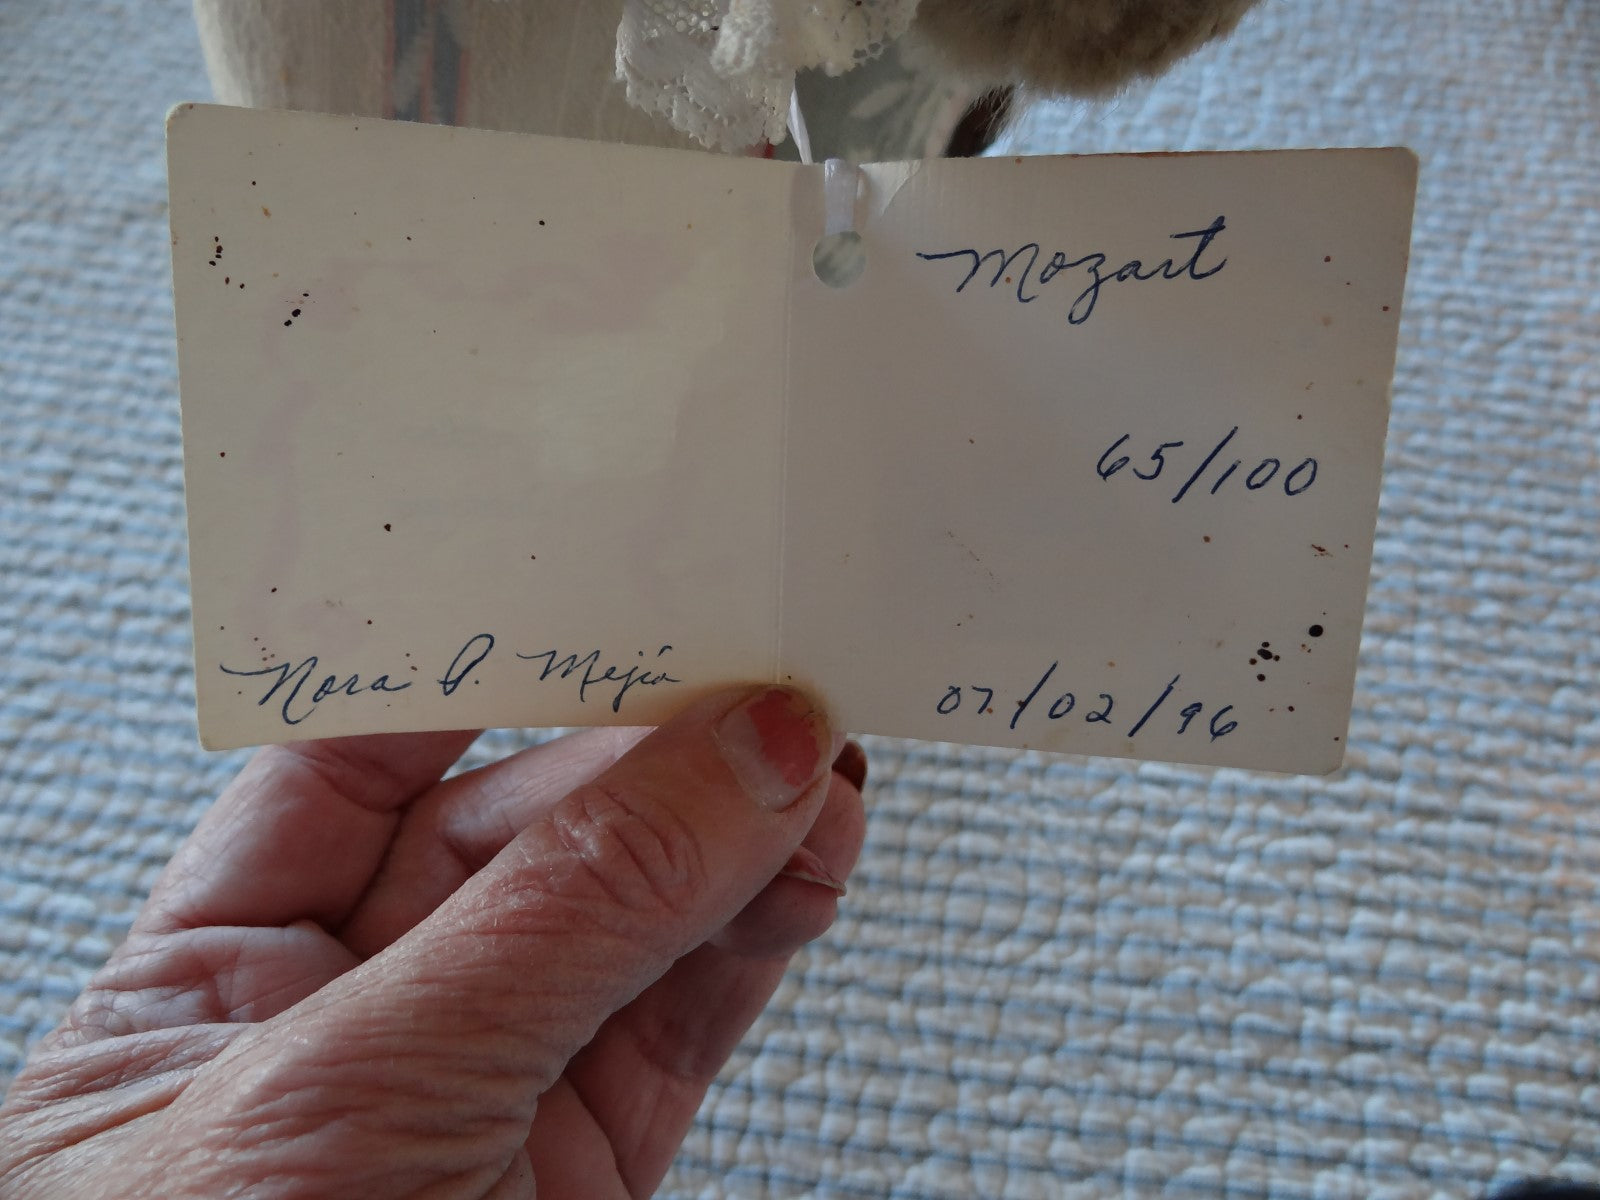 Mozart
65/100
Nora P. Mejía
07/02/96